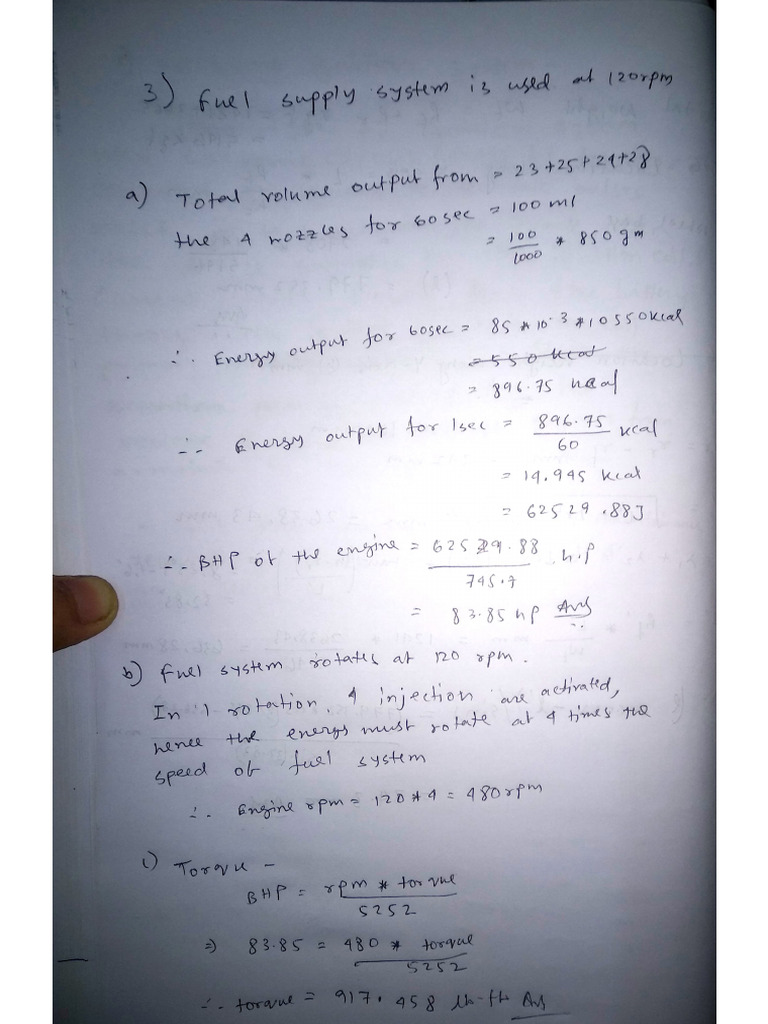 3) Fuel supply system is used at 120rpm
a) Total volume output from = 23+25+24+28
the 4 nozzles for 60sec = 100 ml
= 100/1000 * 850 gm
∴ Energy output for 60sec = 85 * 10^-3 * 10550 kcal
= 550 kcal
= 896.75 kcal
∴ Energy output for 1sec = 896.75/60 kcal
= 14.945 kcal
= 62529.88J
∴ BHP of the engine = 62529.88/745.7 h.p
= 83.85 hp Ans
b) Fuel system rotates at 120 rpm.
In 1 rotation, 4 injection are activated,
hence the energy must rotate at 4 times the
speed of fuel system
∴ Engine rpm = 120*4 = 480rpm
c) Torque -
BHP = rpm * torque/5252
⇒ 83.85 = 480 * torque/5252
∴ torque = 917.458 lb-ft Ans